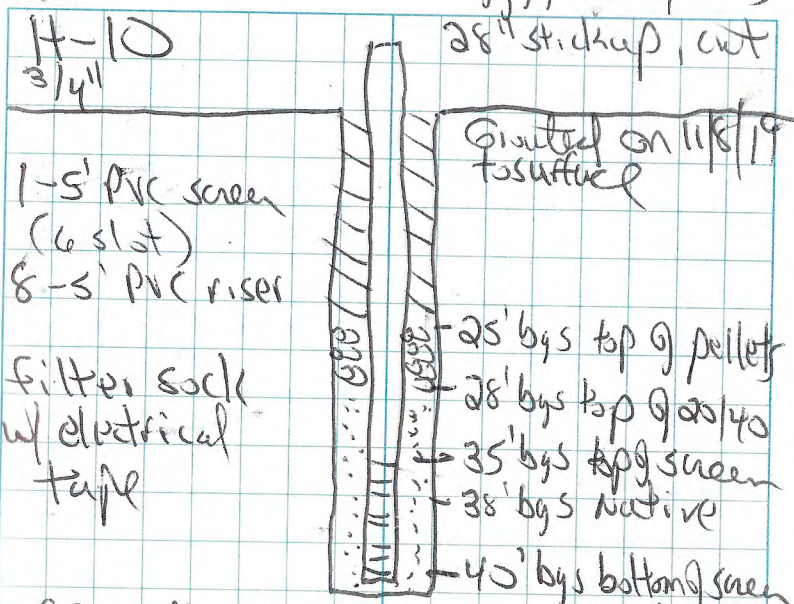 H-10
3/4"
28" stickup, cut
Grouted on 11/8/19
to surface
1-5' PVC screen
(6 slot)
8-5' PVC riser
filter sock
w/ electrical
tape
25' bgs top of pellets
28' bgs top of 20/40
35' bgs top of screen
38' bgs Native
40' bgs bottom of screen